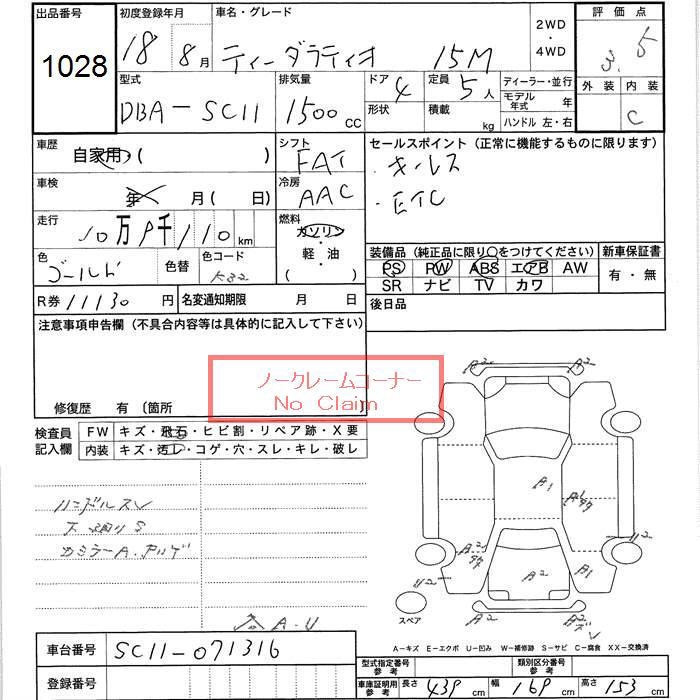 出品番号 初度登録年月 車名・グレード 2WD・4WD 評価点
1028 18 8月 ティーダラティオ 15M 3.5
型式 排気量 ドア 4 定員 5人 ディーラー・並行 外装 内装
DBA-SC11 1500cc 形状 積載 kg モデル年式 年 C
ハンドル 左・右
車歴 自家用( ) シフト FAT セールスポイント(正常に機能するものに限ります)
・キーレス
車検 年 月( 日) 冷房 AAC ・ETC
走行 10万9千110km 燃料 ガソリン・軽・油( )
装備品(純正品に限り○をつけてください) 新車保証書
色 ゴールド 色替 色コード K32 PS PW ABS エアB AW 有・無
SR ナビ TV カワ
R券 11130円 名変通知期限 月 日 後日品
注意事項申告欄(不具合内容等は具体的に記入して下さい)
ノークレームコーナー
No Claim
修復歴 有 〔箇所 〕
検査員記入欄 FW キズ・飛石・ヒビ割・リペア跡・X要
内装 キズ・汚レ・コゲ・穴・スレ・キレ・破レ
ハンドルスレ
下廻りS
A2 A2
A1 A1
A2 A2 A1 A2
スペア
A-キズ E-エクボ U-凹み W-補修跡 S-サビ C-腐食 XX-交換済
車台番号 SC11-071316
登録番号
型式指定番号 参考 類別区分番号 参考
車庫証明用 参考 長さ 439cm 幅 169cm 高さ 153cm